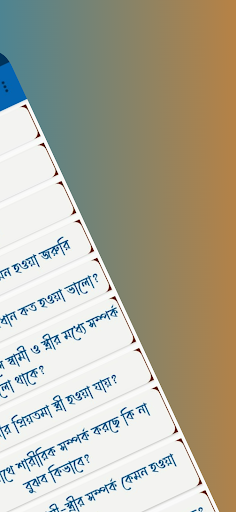 হওয়া জরুরি
কত হওয়া ভালো?
স্বামী ও স্ত্রীর মধ্যে সম্পর্ক
থাকে?
প্রিয়তমা স্ত্রী হওয়া যায়?
শারীরিক সম্পর্ক করছে কি না
বুঝব কিভাবে?
স্ত্রীর সম্পর্ক কেমন হওয়া